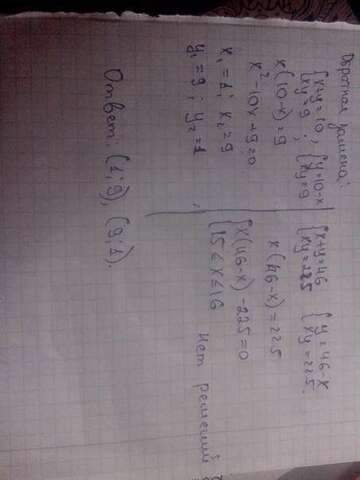 Обратная замена:
{x+y=10, xy=9 ; {y=10-x, xy=9
x(10-x)=9
x²-10x+9=0
x₁=1; x₂=9
y₁=9; y₂=1
{x+y=46, xy=225 {y=46-x, xy=225.
x(46-x)=225
{x(46-x)-225=0
15≤x≤16
Нет решений
Ответ: (1;9), (9;1).